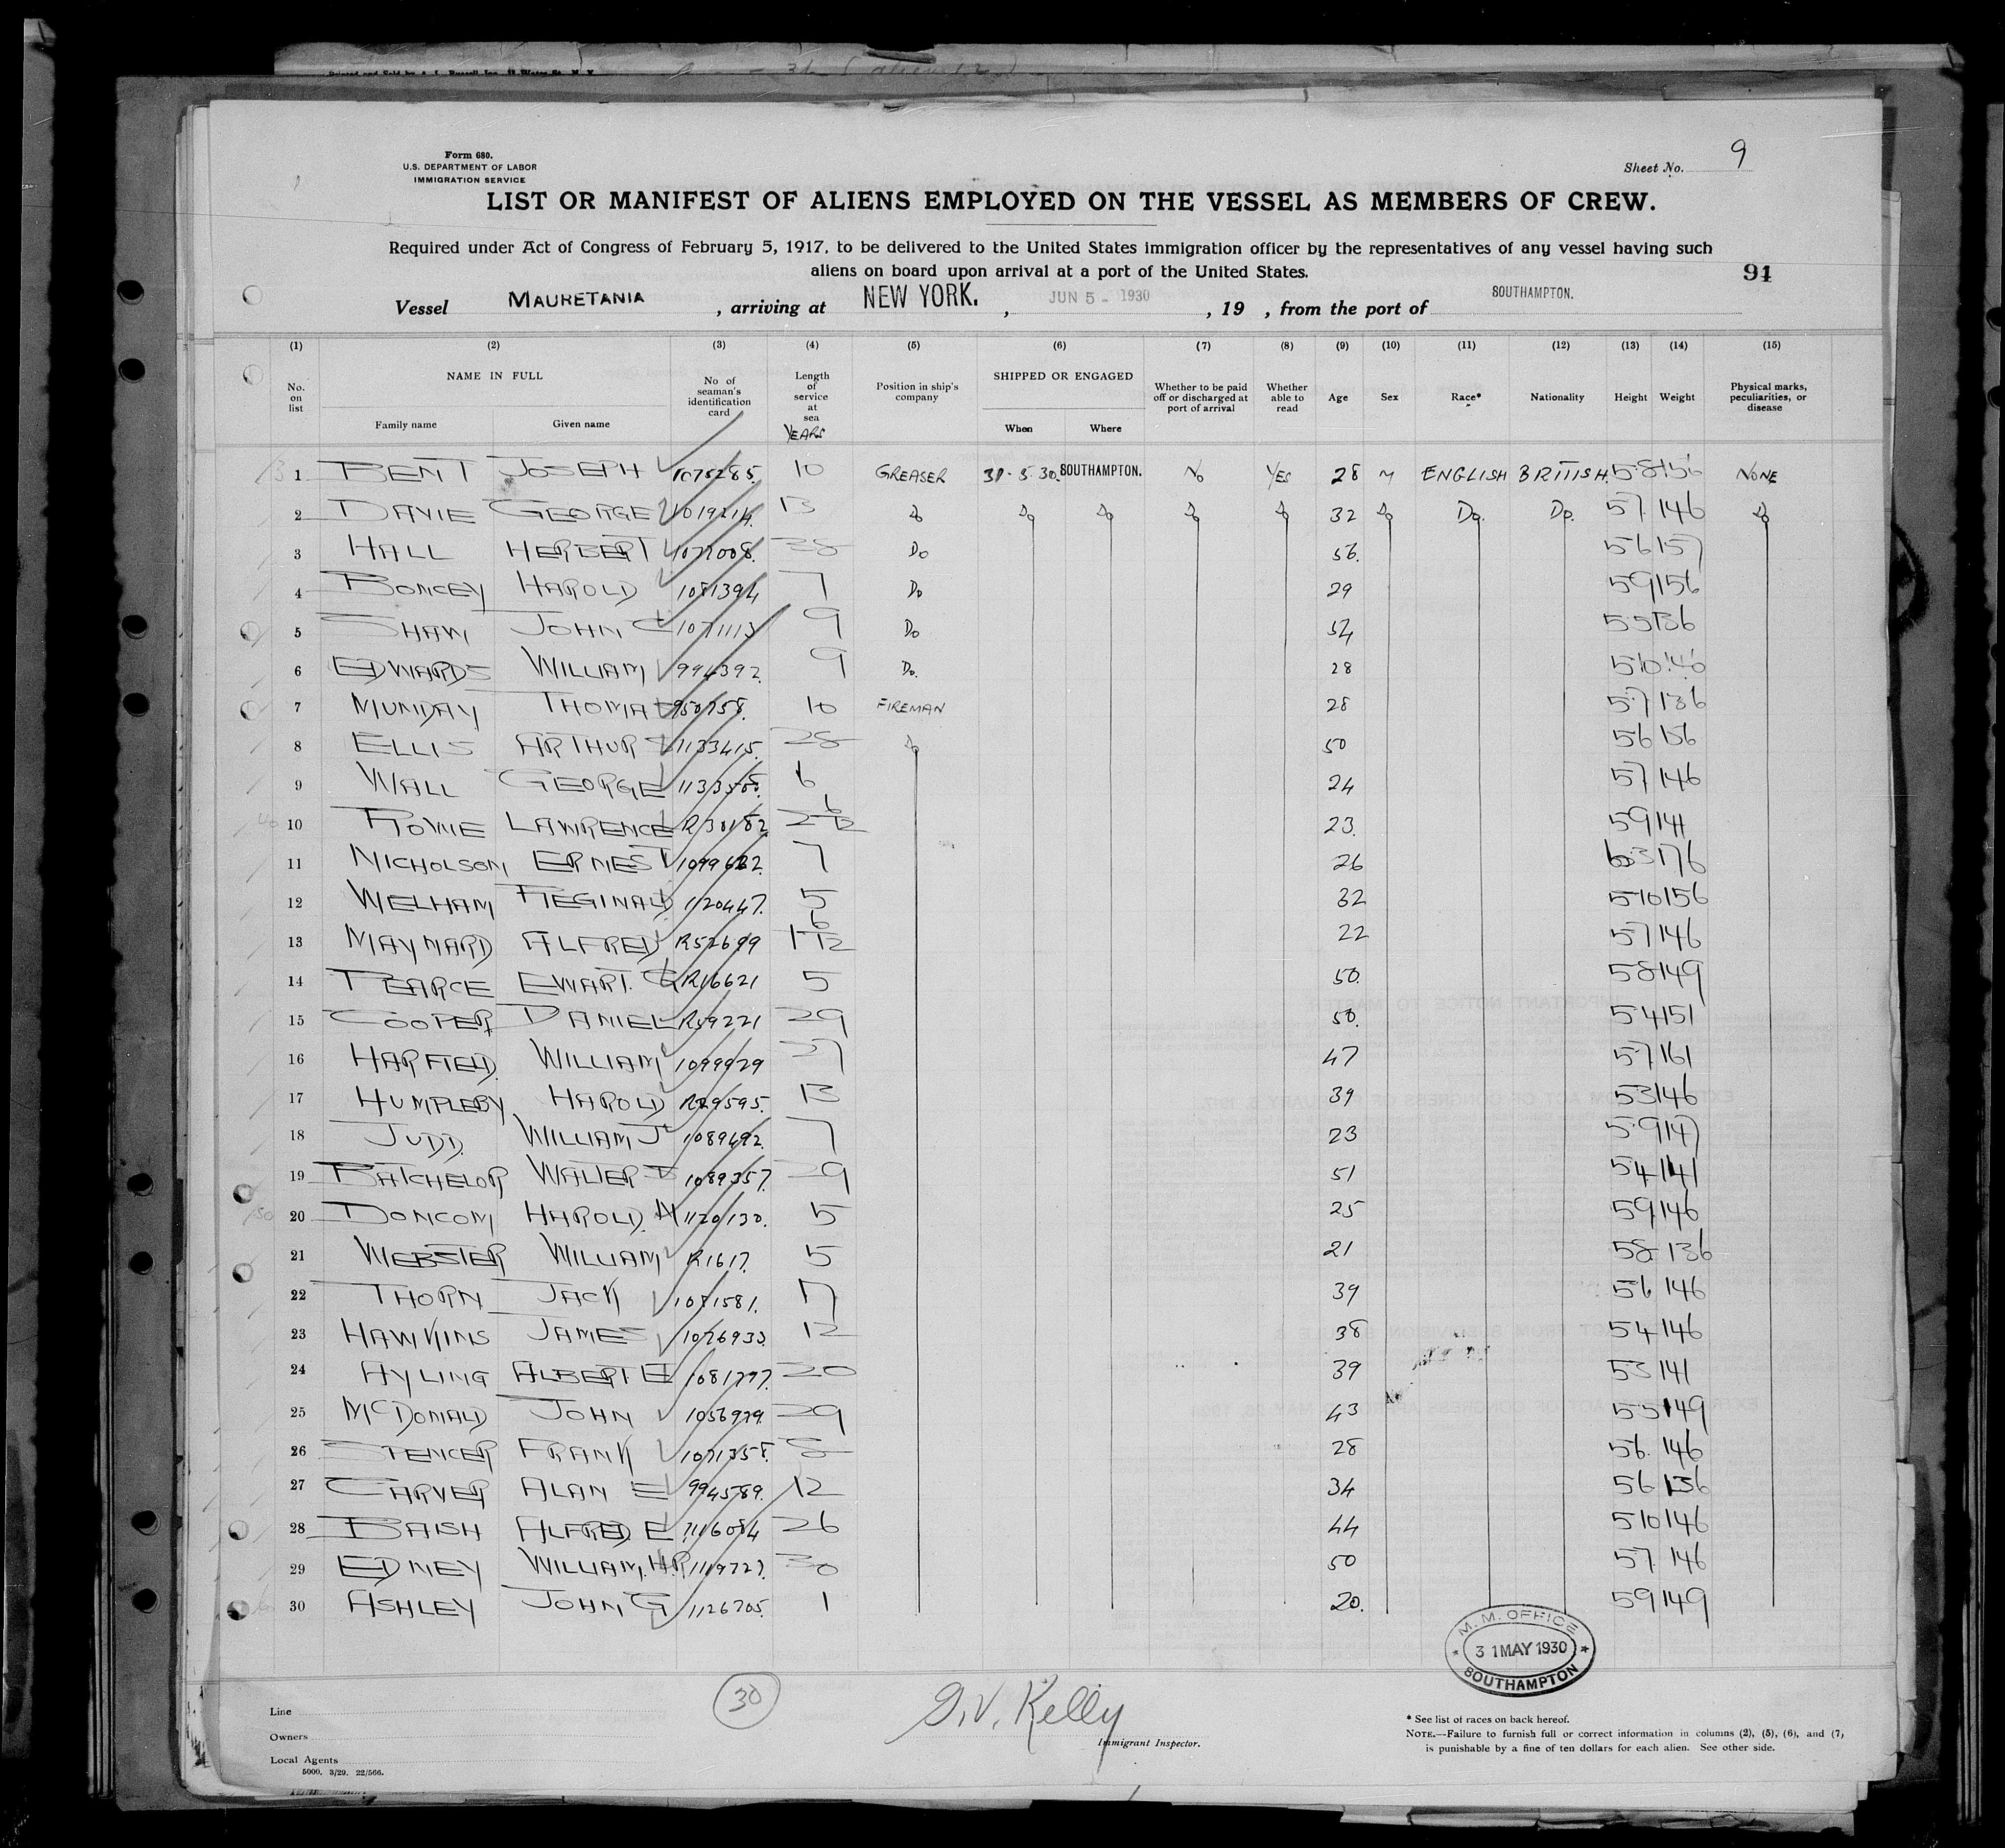 Form 680.
U.S. DEPARTMENT OF LABOR
IMMIGRATION SERVICE
Sheet No. 9
LIST OR MANIFEST OF ALIENS EMPLOYED ON THE VESSEL AS MEMBERS OF CREW.
Required under Act of Congress of February 5, 1917, to be delivered to the United States immigration officer by the representatives of any vessel having such
aliens on board upon arrival at a port of the United States.
91
Vessel MAURETANIA, arriving at NEW YORK., JUN 5 - 1930, 19 , from the port of SOUTHAMPTON.
(1) (2) (3) (4) (5) (6) (7) (8) (9) (10) (11) (12) (13) (14) (15)
No. on list NAME IN FULL Family name Given name No of seaman's identification card Length of service at sea YEARS Position in ship's company SHIPPED OR ENGAGED When Where Whether to be paid off or discharged at port of arrival Whether able to read Age Sex Race* Nationality Height Weight Physical marks, peculiarities, or disease
1 BENT JOSEPH 1075285. 10 GREASER 31-5-30. SOUTHAMPTON. No YES 28 M ENGLISH BRITISH 5-8 156 NONE
2 DAVIE GEORGE 1019214. 13 Do Do Do Do Do 32 Do Do. Do. 57 146 Do
3 HALL HERBERT 1077008. 38 Do 56. 56 157
4 HAROLD 1081394 7 Do 29 59 156
5 SHAW JOHN C 1071113 9 Do 5-5 136
6 EDWARDS WILLIAM 994392. 9 Do. 28 5-10 146
7 MUNDAY THOMAS 950758. 10 FIREMAN 28 5-7 136
8 ELLIS ARTHUR 1133415. 28 Do 50 56 156
9 WALL GEORGE 6 24 57 146
10 ROWE LAWRENCE R30182 2 6/12 23. 59 141
11 NICHOLSON ERNEST 7 26 176
12 WELHAM REGINALD 1120447. 5 32 5-10 156
13 MAYNARD ALFRED R52699 1 6/12 22 57 146
14 PEARCE EWART. G R16621 5 50. 58 149
15 COOPER DANIEL R59221 29 50. 5-4 151
16 HARFIELD WILLIAM 1099929 27 47 5-7 161
17 HUMPLEBY HAROLD R29595. 13 39 53 146
18 JUDD. WILLIAM J 1089492. 7 23 5-9 147
19 BATCHELOR WALTER 1089357. 29 51 54 141
20 DONCOM HAROLD. A 1120130. 5 25 59 146
21 WEBSTER WILLIAM R1617. 5 21 58 136
22 THORN JACK 1081581. 17 39 56 146
23 HAWKINS JAMES 1076933. 12 38 54 146
24 AYLING ALBERT E 1081797. 20 39 53 141
25 McDONALD JOHN 1056979. 29 43 5-5 149
26 SPENCER FRANK 1071358. 8 28 56. 146
27 CARVER ALAN E 994589. 12 34 56 136
28 BAISH ALFRED E 1116084 26 44 510 146
29 EDNEY WILLIAM. H.R 1119727. 30 50 57 146
30 ASHLEY JOHN G 1126705. 1 20. 59 149
M. M. OFFICE
31 MAY 1930
SOUTHAMPTON
30
G. V. Kelly
Immigrant Inspector.
Line
Owners
Local Agents
5000. 3/29. 22/566.
* See list of races on back hereof.
NOTE.—Failure to furnish full or correct information in columns (2), (5), (6), and (7),
is punishable by a fine of ten dollars for each alien. See other side.